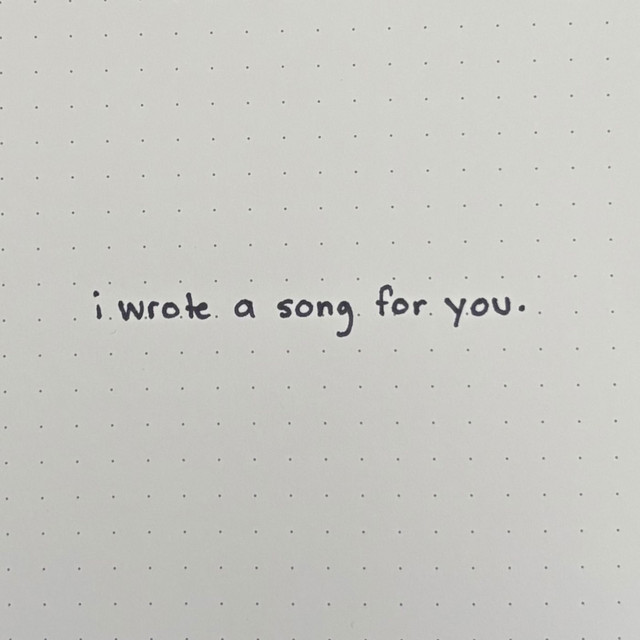 i wrote a song for you.